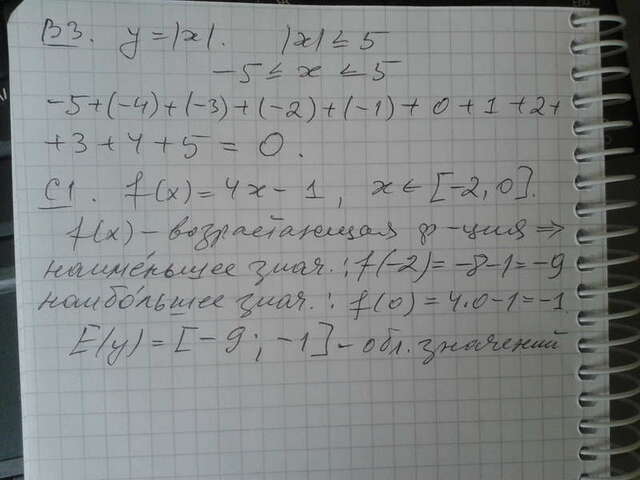 В3. y = |x|. |x| ≤ 5
-5 ≤ x ≤ 5
-5+(-4)+(-3)+(-2)+(-1)+0+1+2+
+3+4+5 = 0.
С1. f(x) = 4x-1, x ∈ [-2,0].
f(x) - возрастающая ф-ция ⇒
наиме́ньшее знач.: f(-2) = -8-1 = -9
наибо́льшее знач.: f(0) = 4·0-1 = -1.
E(y) = [-9; -1] - обл. значений